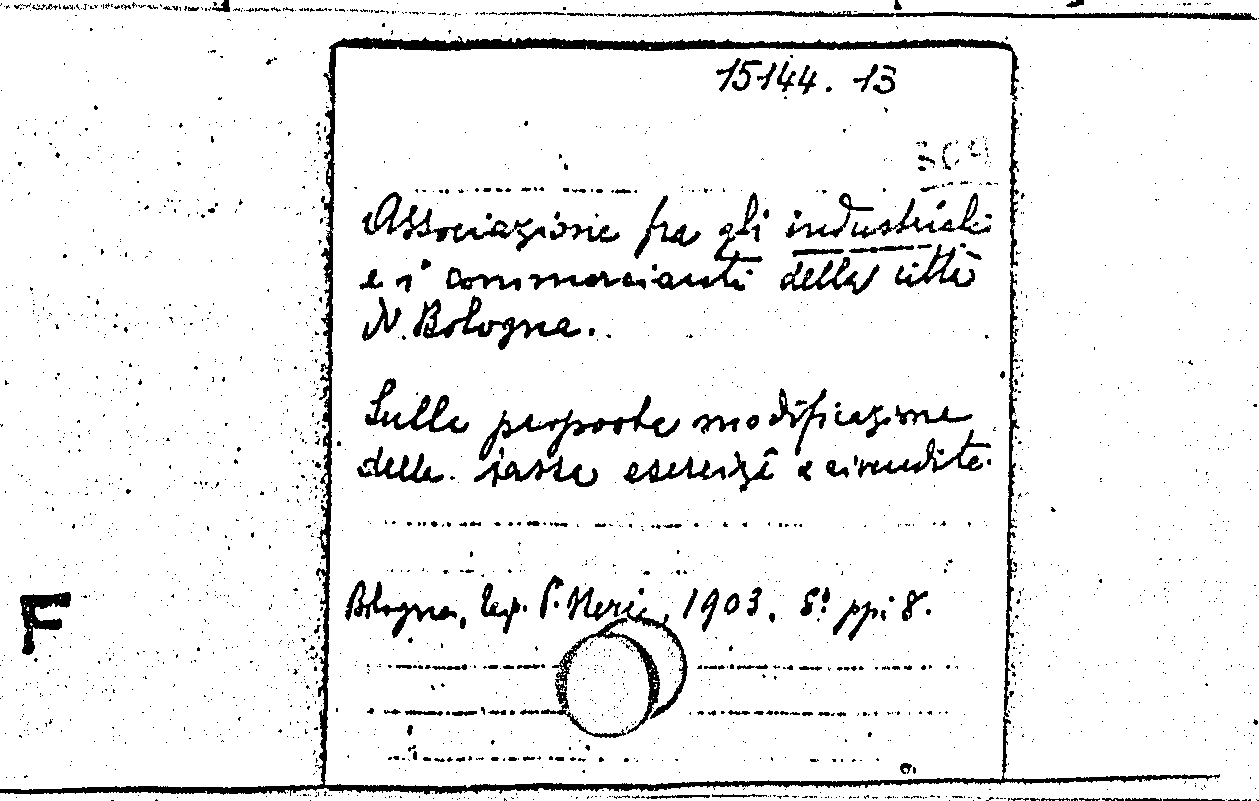 15144. 13
309
Associazione fra gli industriali
e i commercianti della città
di Bologna.
Sulle proposte modificazione
delle tasse esercizî e rivendite.
F
Bologna, tip. P. Neri, 1903, 8º pp. 8.